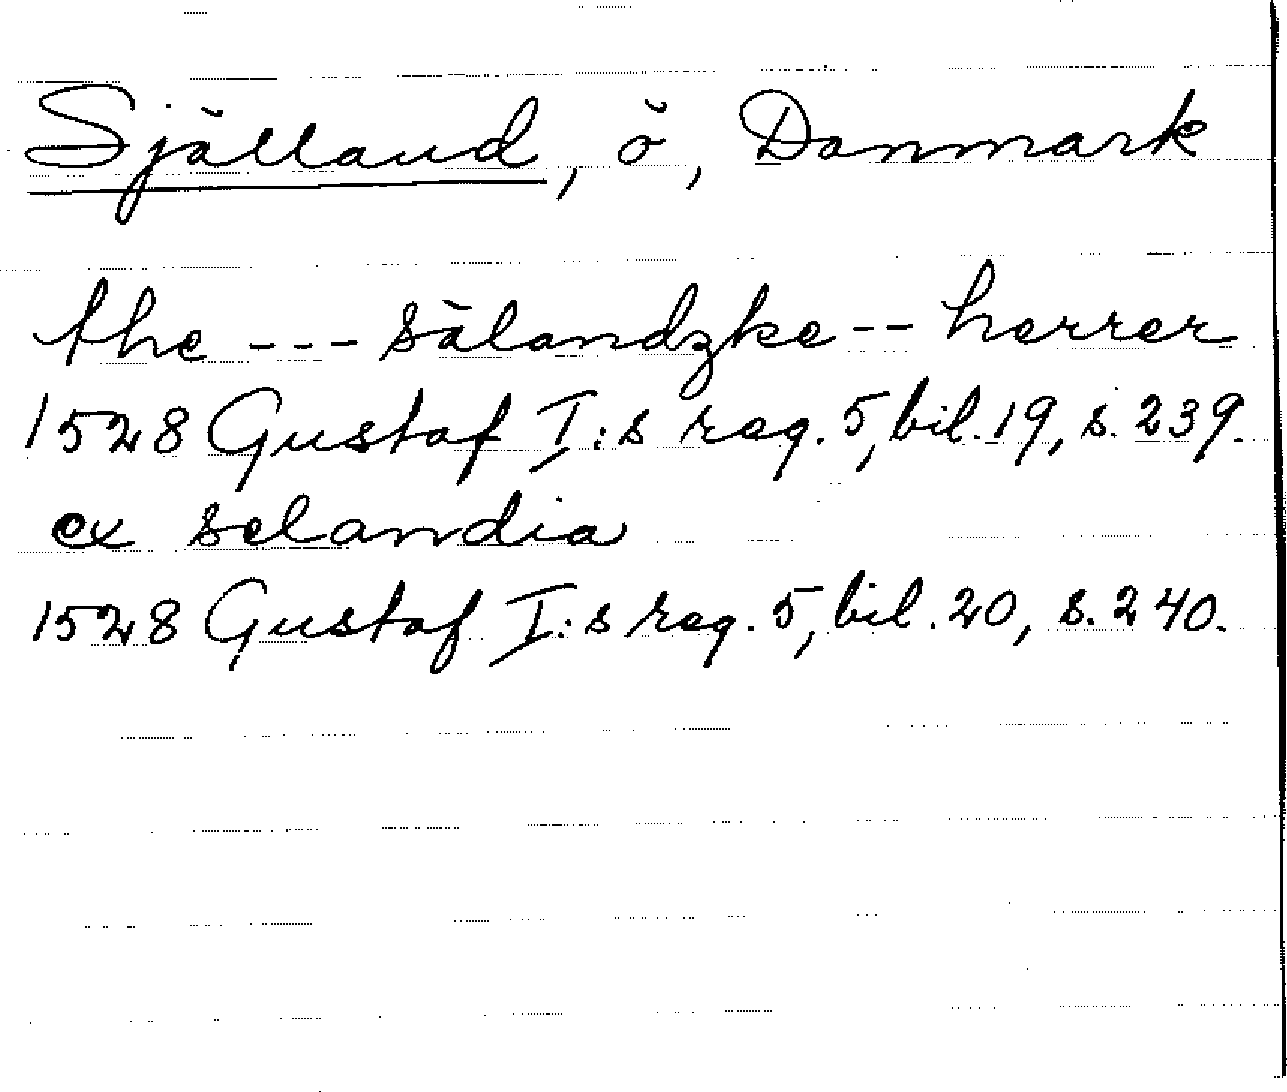 Själland, ö, Danmark
the --- sälandzke -- herrer
1528 Gustaf I:s reg. 5, bil. 19, s. 239.
ex selandia
1528 Gustaf I:s reg. 5, bil. 20, s. 240.